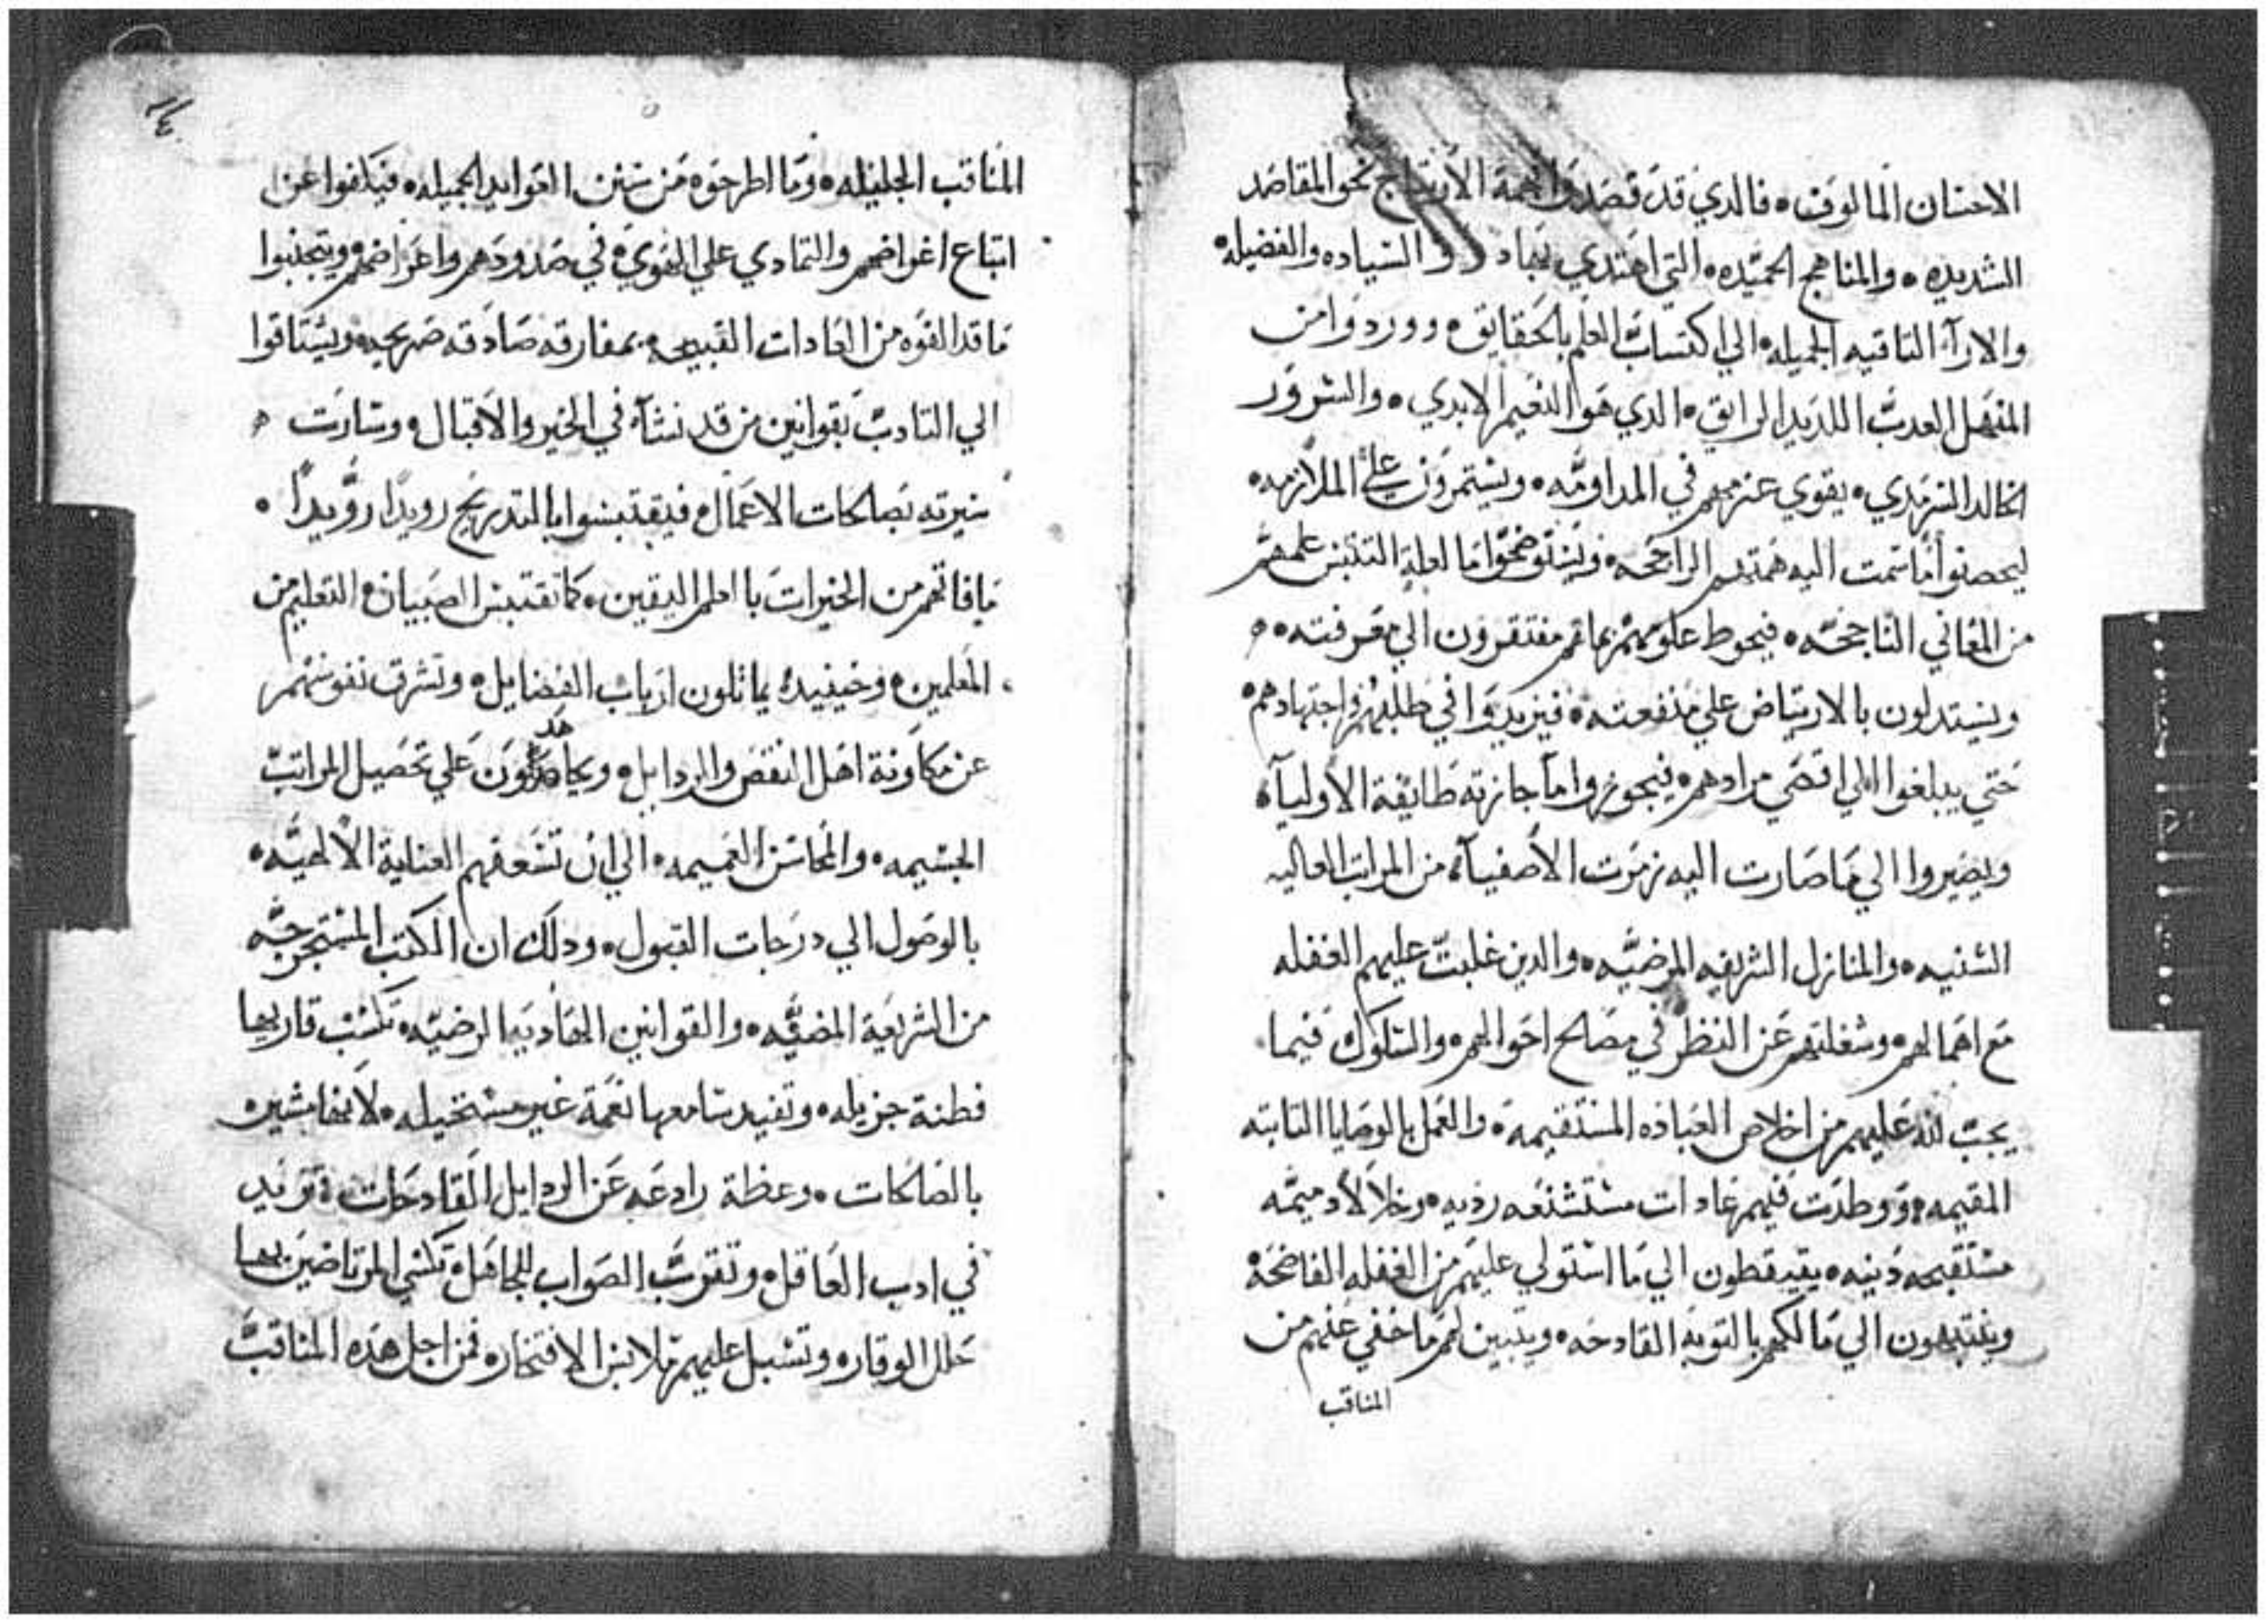 الاحسان المالوف ه فالدي قد قصد الارتياح نحو المقاصد
الشديده ه والمناهج الحميده ه التي اهتدي بها السياده والفضيله ه
والارآء التاقبه الجميله ه الي اكتساب العلم بالحقايق ه ووردوا من
المنهل العدب اللديد الرايق ه الدي هو النعيم الابدي ه والسرور
الخالد السرمدي ه يقوي عزمهم في المداومه ه ويستمرون علي الملازمه ه
ليحصلوا ما سمت اليه همتهم الراجحه ه ويستوضحوا ما لعله التبس علمهم
من المعاني الناجحه ه فيحوط علومهم بما هم مفتقرون الي معرفته ه
ويستدلون بالارتياض علي منفعته ه فيزيدوا في طلبهم واجتهادهم ه
حتي يبلغوا الي اقصي مرادهم ه فيجوزوا ما جازته طايفة الاوليآء
ويصيروا الي ما صارت اليه زمرت الاصفيآء من المراتب العاليه
السنيه ه والمنازل الشريفه المرضيه ه والدين غلبت عليهم الغفله
مع اهمالهم ه وشغلتهم عن النظر في مصالح احوالهم ه والسلوك فيما
يجب لله عليهم من اخلاص العباده المستقيمه ه والعمل بالوصايا التابته
المقيمه ه ووطدت فيهم عادات مستشنعه رديه ه وخلالا دميمه
مستقبحه دنيه ه يقيقطون الي ما استولي عليهم من الغفله الفاضحه
وينتبهون الي مالكهم بالتوبه القادحه ه ويتبين لهم ما خفي عنهم من
المناقب
المناقب الجليله ه وما اطرحوه من سنن الفوايد الجميله ه فيكفوا عن
اتباع اغراضهم والتمادي علي القوي في صدودهم واعراضهم ويتجنبوا
ما قد الفوه من العادات القبيحه بمفارقه صادقه صريحه ويشتاقوا
الي التادب بقوانين من قد نشأ في الخير والاقبال ه وسارت
سيرته بصالحات الاعمال ه فيقتبسوا بالتدريج رويدًا رويدًا ه
ما فاتهم من الخيرات با اعلم اليقين ه كما تقتبس الصبيان التعليم من
المعلمين ه وحينيد يماتلون ارباب الفضايل ه وتشرق نفوسهم
عن مكاونة اهل النقص والردايل ه ويجاهدون علي تحصيل المراتب
الجسيمه ه والمحاسن العميمه ه الي ان تسعفهم العناية الالهيه ه
بالوصول الي درجات القبول ه ودلك ان الكتب المستخرجه
من الشريعة المضيه ه والقوانين الهاديه المرضيه ه تكسب قاريها
فطنة جزيله ه وتفيد سامعها نعمة غير مستحيله ه لا
بالصالحات ه وعظة رادعه عن الردايل القادحات ه تزيد
في ادب العاقل ه وتقرب الصواب للجاهل ه تكسي المرتاضين بها
حلل الوقار ه وتسبل عليهم ملابس الافتخار ه فمن اجل هده المناقب